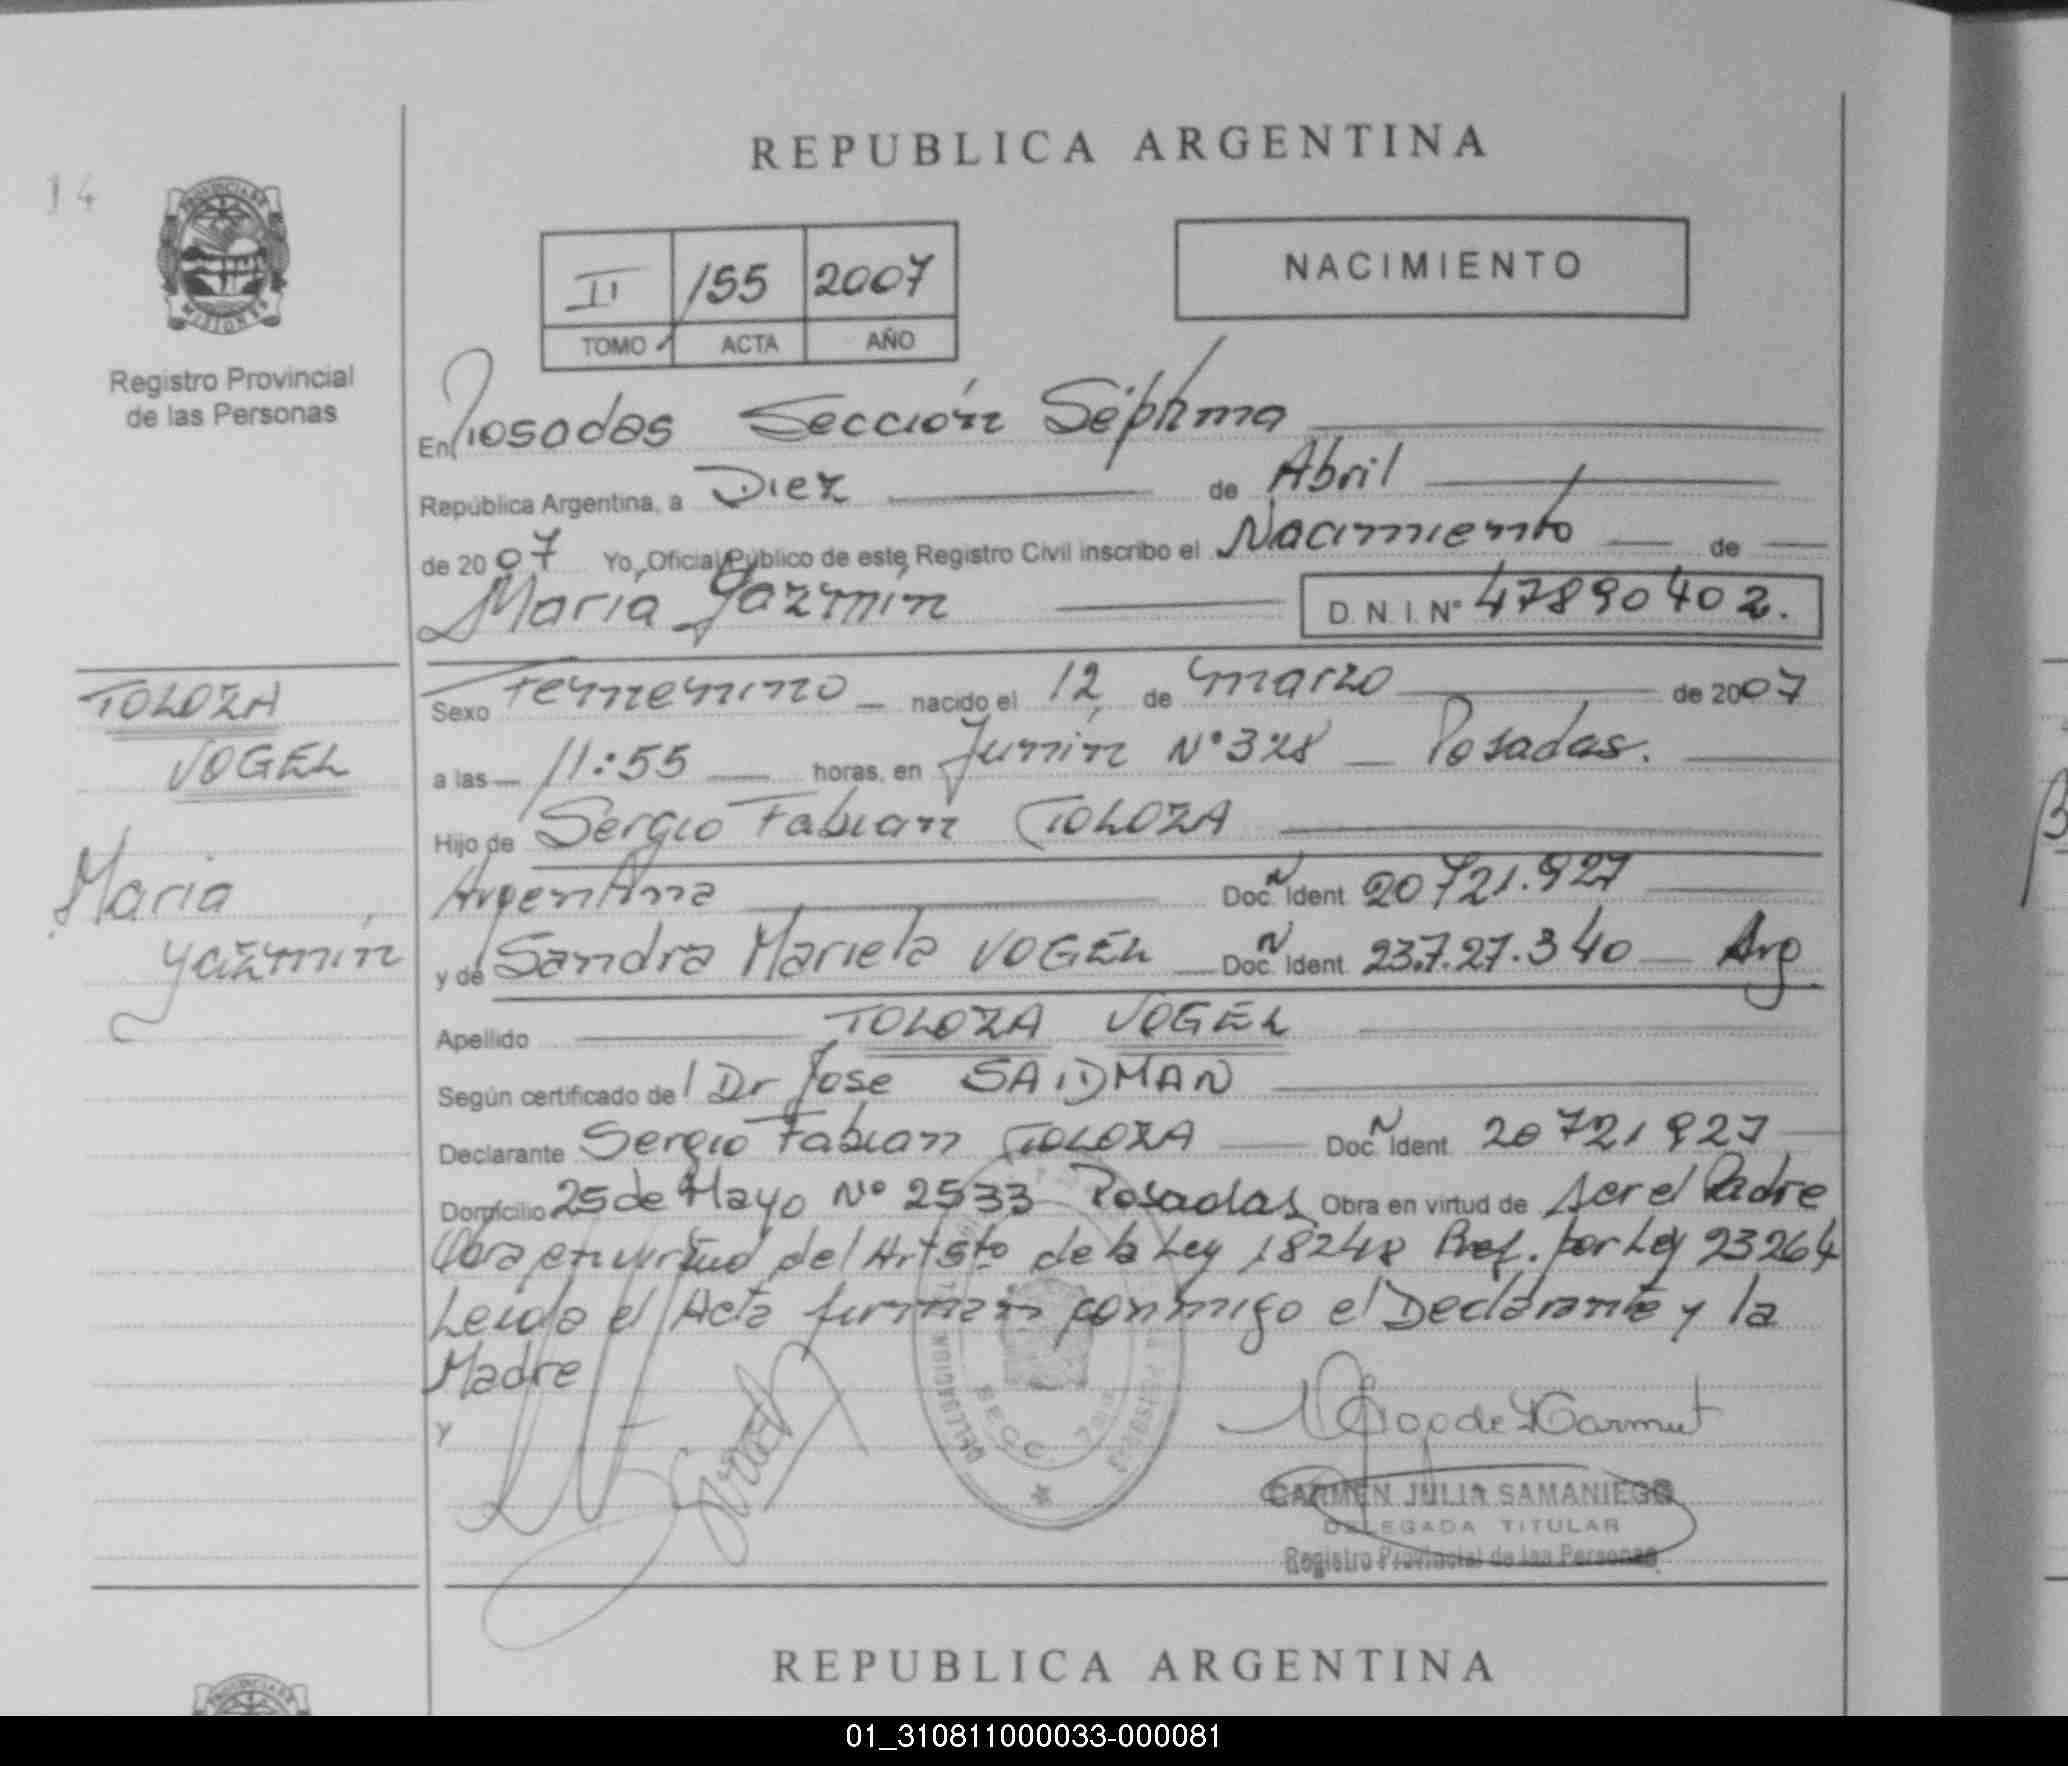 REPUBLICA ARGENTINA
14
PROVINCIA DE
MISIONES
Registro Provincial
de las Personas
II 155 2007
TOMO ACTA AÑO
NACIMIENTO
En Posadas Sección Séptima
República Argentina, a Diez de Abril
de 2007 Yo, Oficial Público de este Registro Civil inscribo el Nacimiento de
Maria Yazmín D.N.I. Nº 47890402.
TOLOZA
VOGEL
Maria
Yazmín
Sexo Femenino nacido el 12 de marzo de 2007
a las 11:55 horas, en Junín Nº 328 Posadas.
Hijo de Sergio Fabian TOLOZA
Argentina Doc. Ident. 20721.927
y de Sandra Mariela VOGEL Doc. Ident. 23.727.340 Arg
Apellido TOLOZA VOGEL
Según certificado del Dr Jose SAIDMAN
Declarante Sergio Fabian TOLOZA Doc. Ident. 20721927
Domicilio 25 de Mayo Nº 2533 Posadas Obra en virtud de ser el Padre
Obra en virtud del Art 5to de la Ley 18248 Ref. por Ley 23264
Leída el Acta firman conmigo el Declarante y la
Madre
y
DELEGACION
SECC. 7ma
CARMEN JULIA SAMANIEGO
DELEGADA TITULAR
Registro Provincial de las Personas
REPUBLICA ARGENTINA
01_310811000033-000081